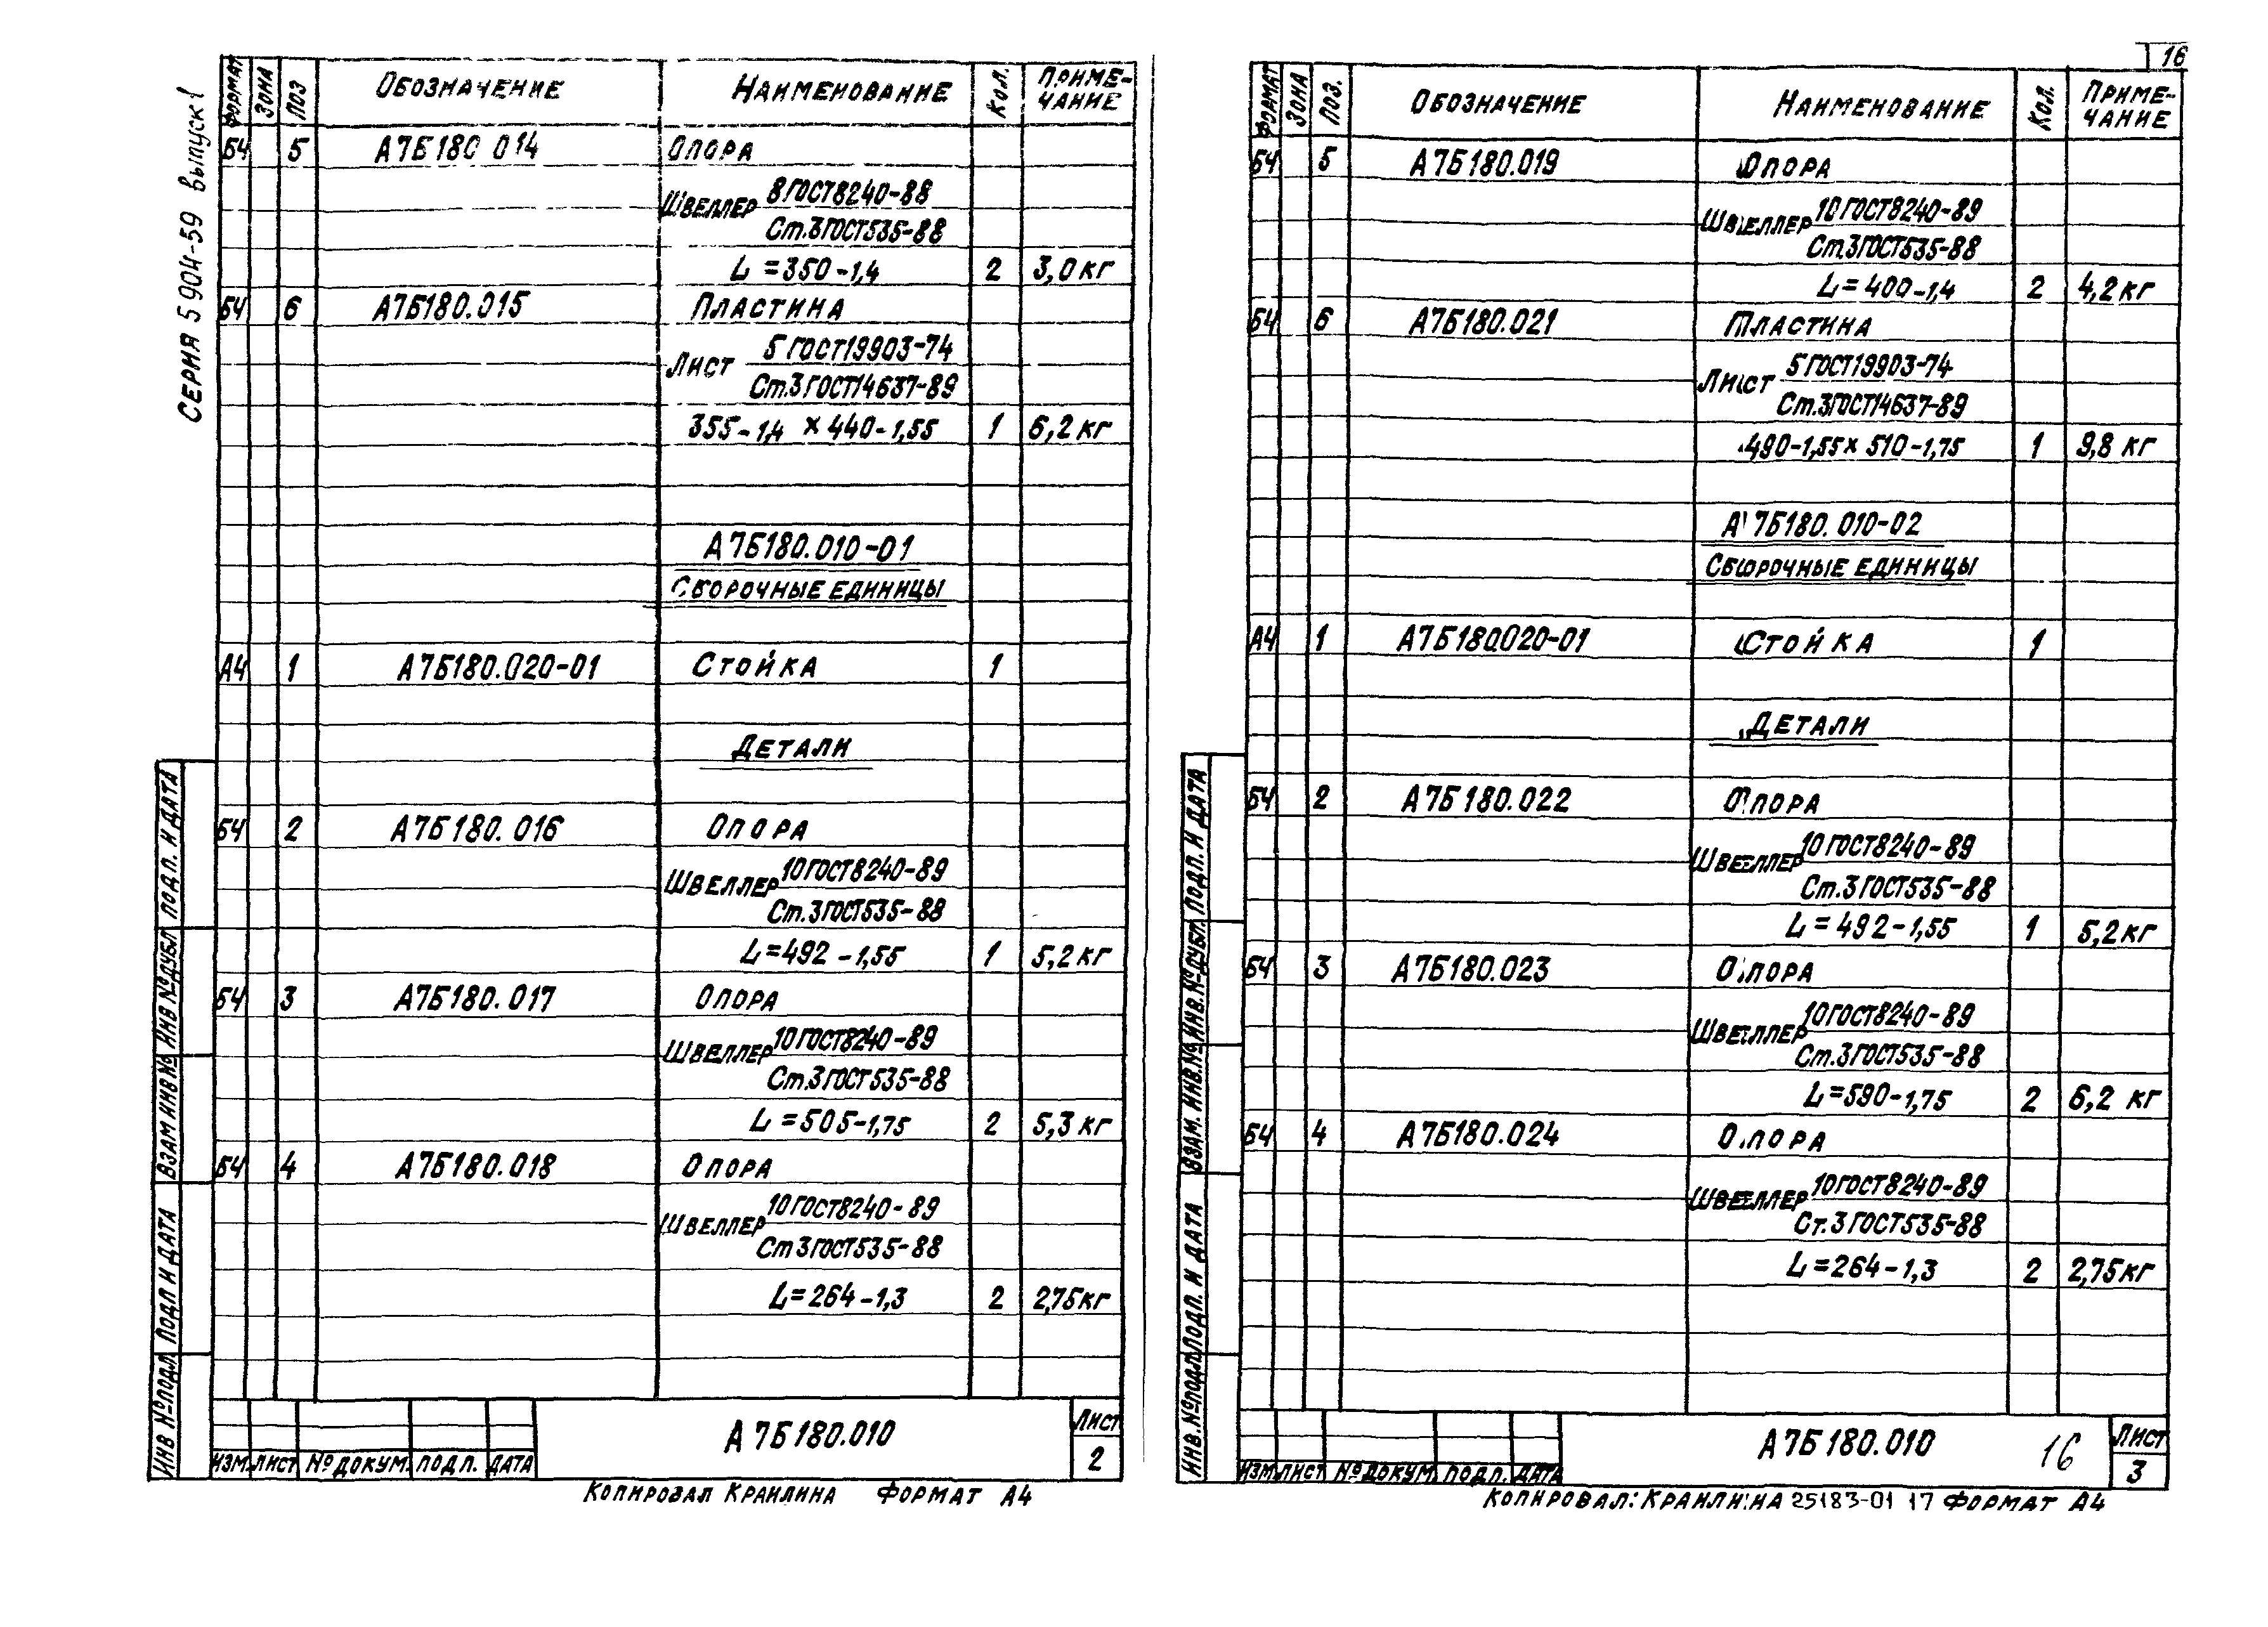 СЕРИЯ 5 904-59 выпуск 1
ФОРМАТ ЗОНА ПОЗ ОБОЗНАЧЕНИЕ НАИМЕНОВАНИЕ КОЛ. ПРИМЕ-
ЧАНИЕ
БЧ 5 А7Б180 014 ОПОРА
ШВЕЛЛЕР 8ГОСТ8240-88
Ст.3ГОСТ535-88
L =350-1,4 2 3,0 кг
БЧ 6 А7Б180.015 ПЛАСТИНА
ЛИСТ 5 ГОСТ19903-74
Ст.3ГОСТ14637-89
355-1,4 × 440-1,55 1 6,2 кг
А7Б180.010-01
СБОРОЧНЫЕ ЕДИНИЦЫ
А4 1 А7Б180.020-01 СТОЙКА 1
ДЕТАЛИ
БЧ 2 А7Б180.016 ОПОРА
ШВЕЛЛЕР 10ГОСТ8240-89
Ст.3ГОСТ535-88
L=492-1,55 1 5,2 кг
БЧ 3 А7Б180.017 ОПОРА
ШВЕЛЛЕР 10ГОСТ8240-89
Ст.3ГОСТ535-88
L=505-1,75 2 5,3 кг
БЧ 4 А7Б180.018 ОПОРА
ШВЕЛЛЕР 10ГОСТ8240-89
Ст3ГОСТ535-88
L=264-1,3 2 2,75кг
ИНВ №ПОДЛ ПОДП И ДАТА ВЗАМ ИНВ № ИНВ №ДУБЛ ПОДП. И ДАТА
ИЗМ. ЛИСТ №ДОКУМ. ПОДП. ДАТА
А7Б180.010
ЛИСТ
2
КОПИРОВАЛ КРАИЛИНА ФОРМАТ А4
16
ФОРМАТ ЗОНА ПОЗ. ОБОЗНАЧЕНИЕ НАИМЕНОВАНИЕ КОЛ. ПРИМЕ-
ЧАНИЕ
БЧ 5 А7Б180.019 ОПОРА
ШВЕЛЛЕР 10ГОСТ8240-89
Ст.3ГОСТ535-88
L=400-1,4 2 4,2 кг
БЧ 6 А7Б180.021 ПЛАСТИНА
ЛИСТ 5ГОСТ19903-74
Ст.3ГОСТ14637-89
490-1,55× 510-1,75 1 9,8 кг
А7Б180.010-02
СБОРОЧНЫЕ ЕДИНИЦЫ
А4 1 А7Б180.020-01 СТОЙКА 1
ДЕТАЛИ
БЧ 2 А7Б180.022 ОПОРА
ШВЕЛЛЕР 10ГОСТ8240-89
Ст.3ГОСТ535-88
L=492-1,55 1 5,2кг
БЧ 3 А7Б180.023 ОПОРА
ШВЕЛЛЕР 10ГОСТ8240-89
Ст.3ГОСТ535-88
L=590-1,75 2 6,2 кг
БЧ 4 А7Б180.024 ОПОРА
ШВЕЛЛЕР 10ГОСТ8240-89
Ст.3ГОСТ535-88
L=264-1,3 2 2,75кг
ИНВ.№ПОДЛ ПОДП. И ДАТА ВЗАМ. ИНВ.№ ИНВ.№ДУБЛ. ПОДП. И ДАТА
ИЗМ. ЛИСТ №ДОКУМ. ПОДП. ДАТА
А7Б180.010 16
ЛИСТ
3
КОПИРОВАЛ: КРАИЛИНА 25183-01 17 ФОРМАТ А4